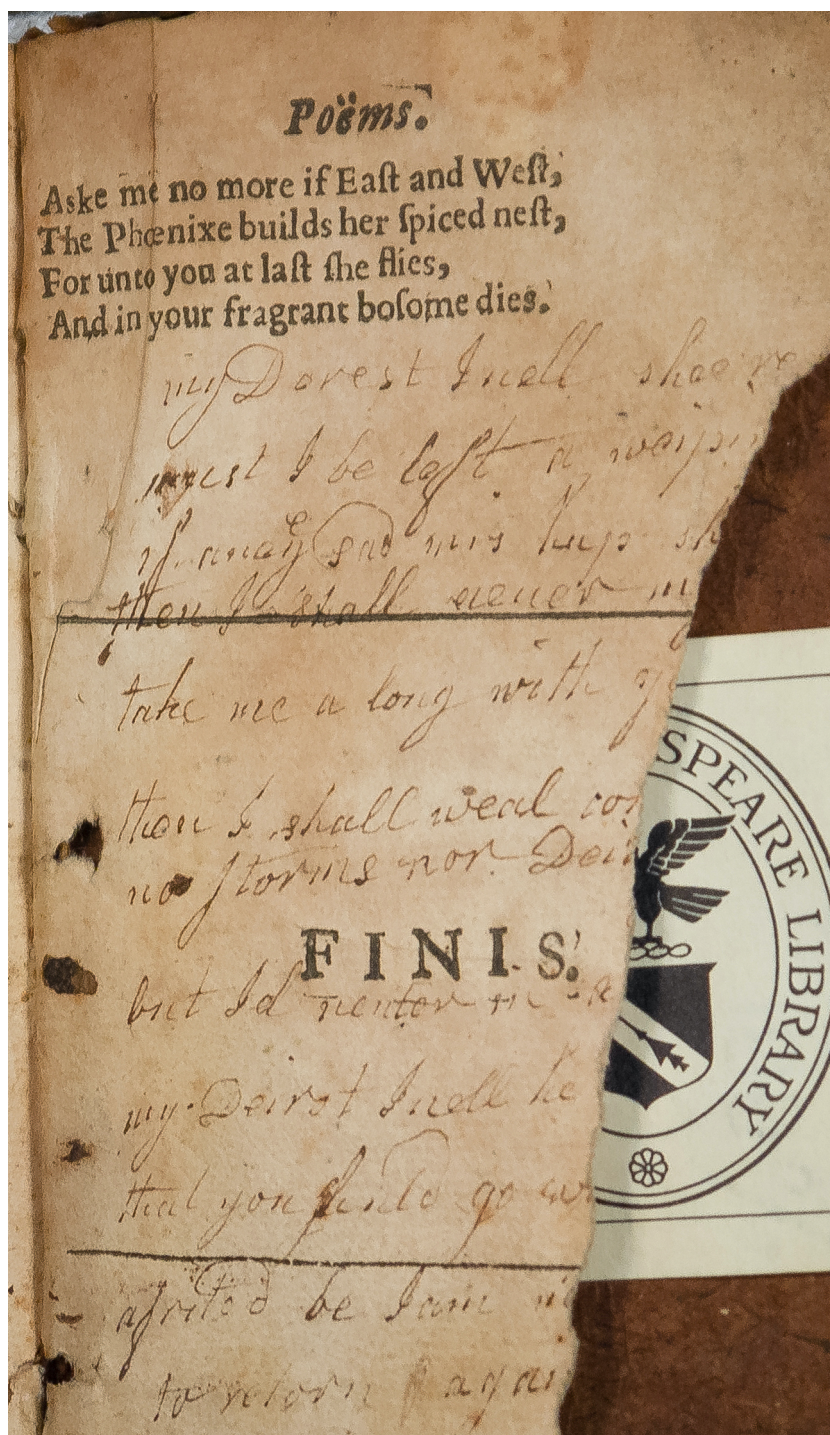 Poëms.
Aske me no more if Eaſt and Weſt,
The Phœnixe builds her ſpiced neſt,
For unto you at laſt ſhe flies,
And in your fragrant boſome dies.
my Dorest Juell shee
must I be laſt a
if aney sad mis hap sh
then I shall neuer m
take me a long with y
then I shall weal co
no storms nor
FINIS.
but Id
my Deirst Juell he
that you go
be I am
to retorn agai
SPEARE LIBRARY